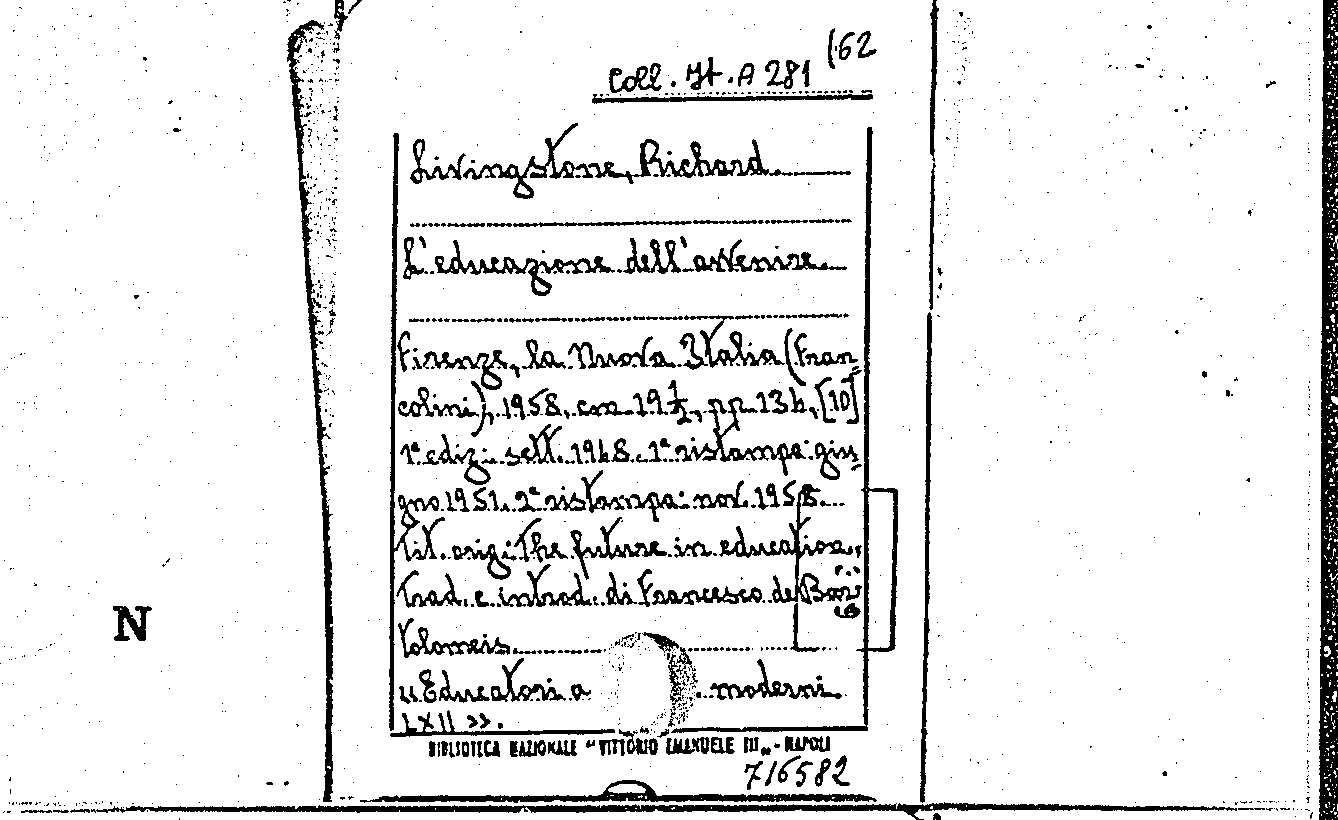 Coll. It. A 281 (62
Livingstone, Richard.
L'educazione dell'avvenire.
Firenze, la Nuova Italia (Fran=
colini), 1958, cm 19 1/2, pp. 136, [10]
1ª ediz: sett. 1948. 1ª ristampa: giu=
gno 1951. 2ª ristampa: nov. 1958.
Tit. orig: The future in education.
Trad. e introd. di Francesco de Bar=
tolomeis.
"Educatori a moderni
LXII».
N
BIBLIOTECA NAZIONALE "VITTORIO EMANUELE III„ - NAPOLI
716582